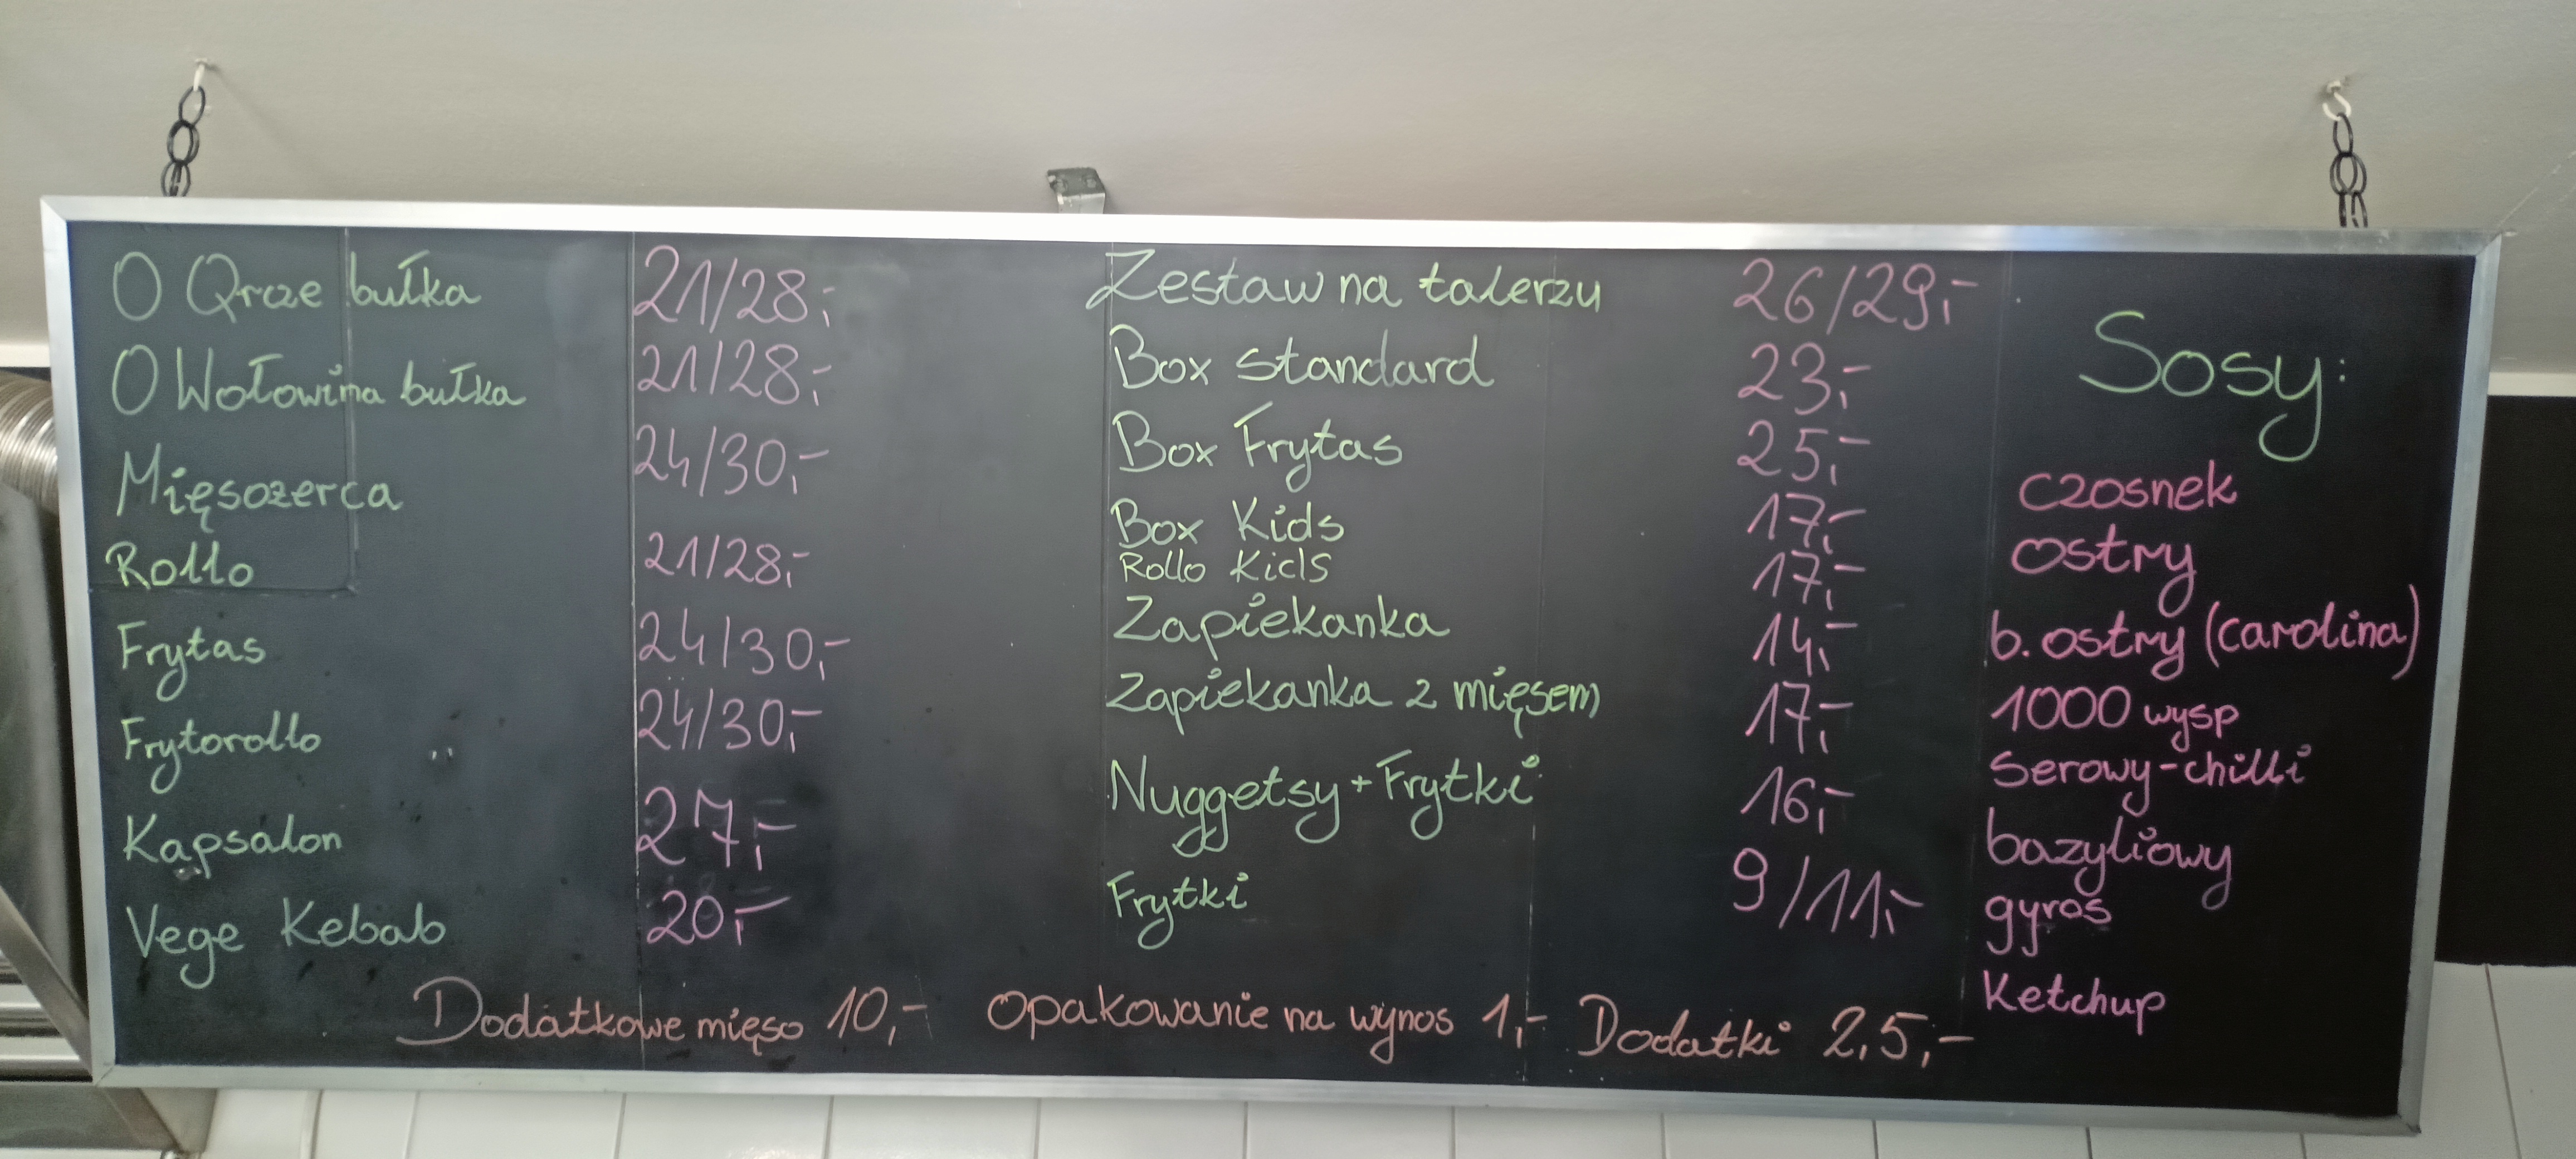 O Qrze bułka 21/28,-
O Wołowina bułka 21/28,-
Mięsożerca 24/30,-
Rollo 21/28,-
Frytas 24/30,-
Frytorollo 24/30,-
Kapsalon 27,-
Vege Kebab 20,-
Zestaw na talerzu 26/29,-
Box standard 23,-
Box Frytas 25,-
Box Kids 17,-
Rollo Kids 17,-
Zapiekanka 14,-
Zapiekanka z mięsem 17,-
Nuggetsy + Frytki 16,-
Frytki 9/11,-
Sosy:
czosnek
ostry
b. ostry (carolina)
1000 wysp
Serowy-chilli
bazyliowy
gyros
Ketchup
Dodatkowe mięso 10,- Opakowanie na wynos 1,- Dodatki 2,5,-